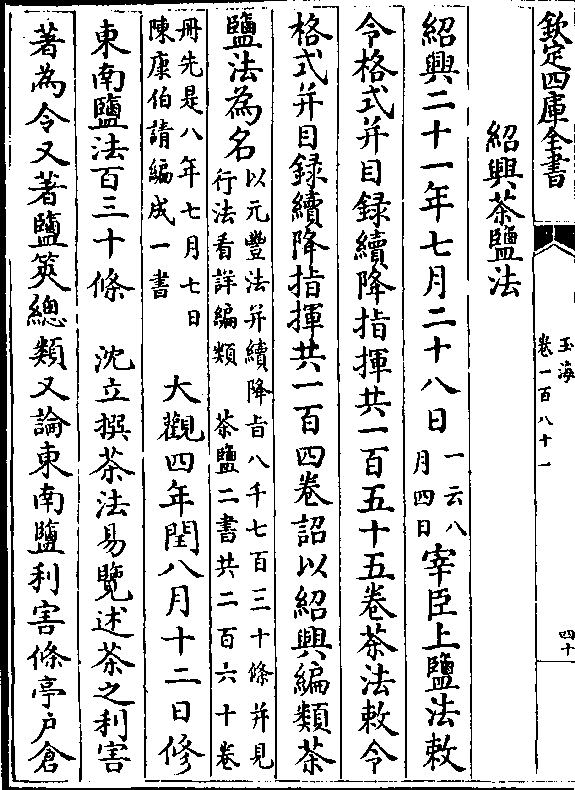 欽定四庫全書
玉海
卷一百八十一
四十
紹興茶鹽法
紹興二十一年七月二十八日一云八月四日宰臣上鹽法敕
令格式并目録續降指揮共一百五十五卷茶法敕令
格式并目録續降指揮共一百四卷詔以紹興編類茶
鹽法為名以元豐法并續降㫖八千七百三十條并見行法看詳編類 茶鹽二書共二百六十卷
冊先是八年七月七日陳康伯請編成一書 大觀四年閏八月十二日修
東南鹽法百三十條 沈立撰茶法易覽述茶之利害
著為令又著鹽筴總類又論東南鹽利害條亭戶倉